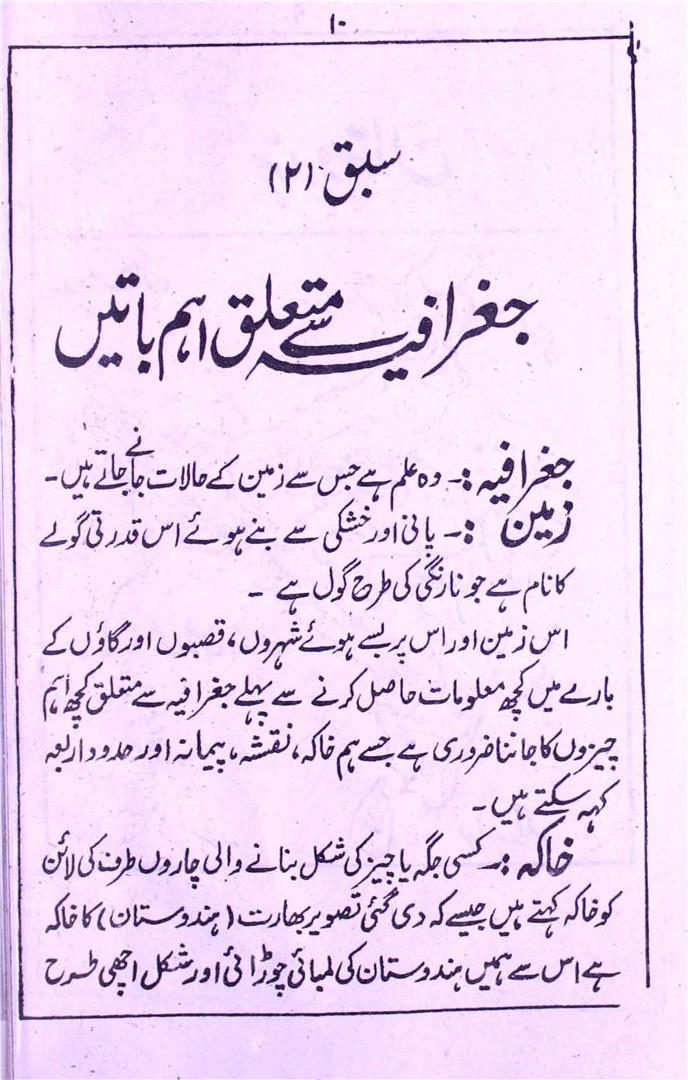 ۱۰
سبق (۲)
جغرافیہ سے متعلق اہم باتیں
جغرافیہ :۔ وہ علم ہے جس سے زمین کے حالات جانے جاتے ہیں۔
زمین :۔ پانی اور خشکی سے بنے ہوئے اس قدرتی گولے
کا نام ہے جو نارنگی کی طرح گول ہے ۔
اس زمین اور اس پر بسے ہوئے شہروں، قصبوں اور گاؤں کے
بارے میں کچھ معلومات حاصل کرنے سے پہلے جغرافیہ سے متعلق کچھ اہم
چیزوں کا جاننا ضروری ہے جسے ہم خاکہ، نقشہ، پیمانہ اور حدود اربعہ
کہہ سکتے ہیں۔
خاکہ :۔ کسی جگہ یا چیز کی شکل بنانے والی چاروں طرف کی لائن
کو خاکہ کہتے ہیں جیسے کہ دی گئی تصویر بھارت (ہندوستان) کا خاکہ
ہے اس سے ہمیں ہندوستان کی لمبائی چوڑائی اور شکل اچھی طرح